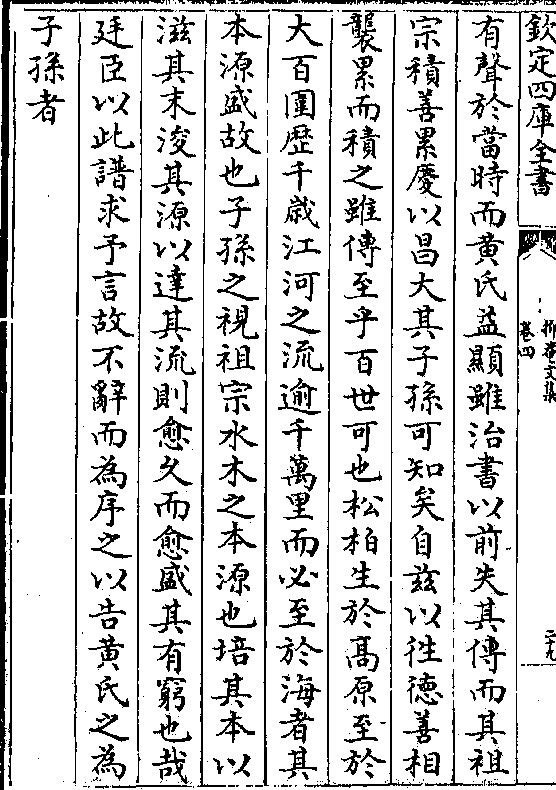 欽定四庫全書
抑菴文集
卷四
二十九
有聲於當時而黄氏益顯雖治書以前失其傳而其祖
宗積善累慶以昌大其子孫可知矣自兹以徃徳善相
襲累而積之雖傳至乎百世可也松柏生於髙原至於
大百圍歴千歲江河之流逾千萬里而必至於海者其
本源盛故也子孫之視祖宗水木之本源也培其本以
滋其末浚其源以達其流則愈久而愈盛其有窮也哉
廷臣以此譜求予言故不辭而為序之以告黄氏之為
子孫者